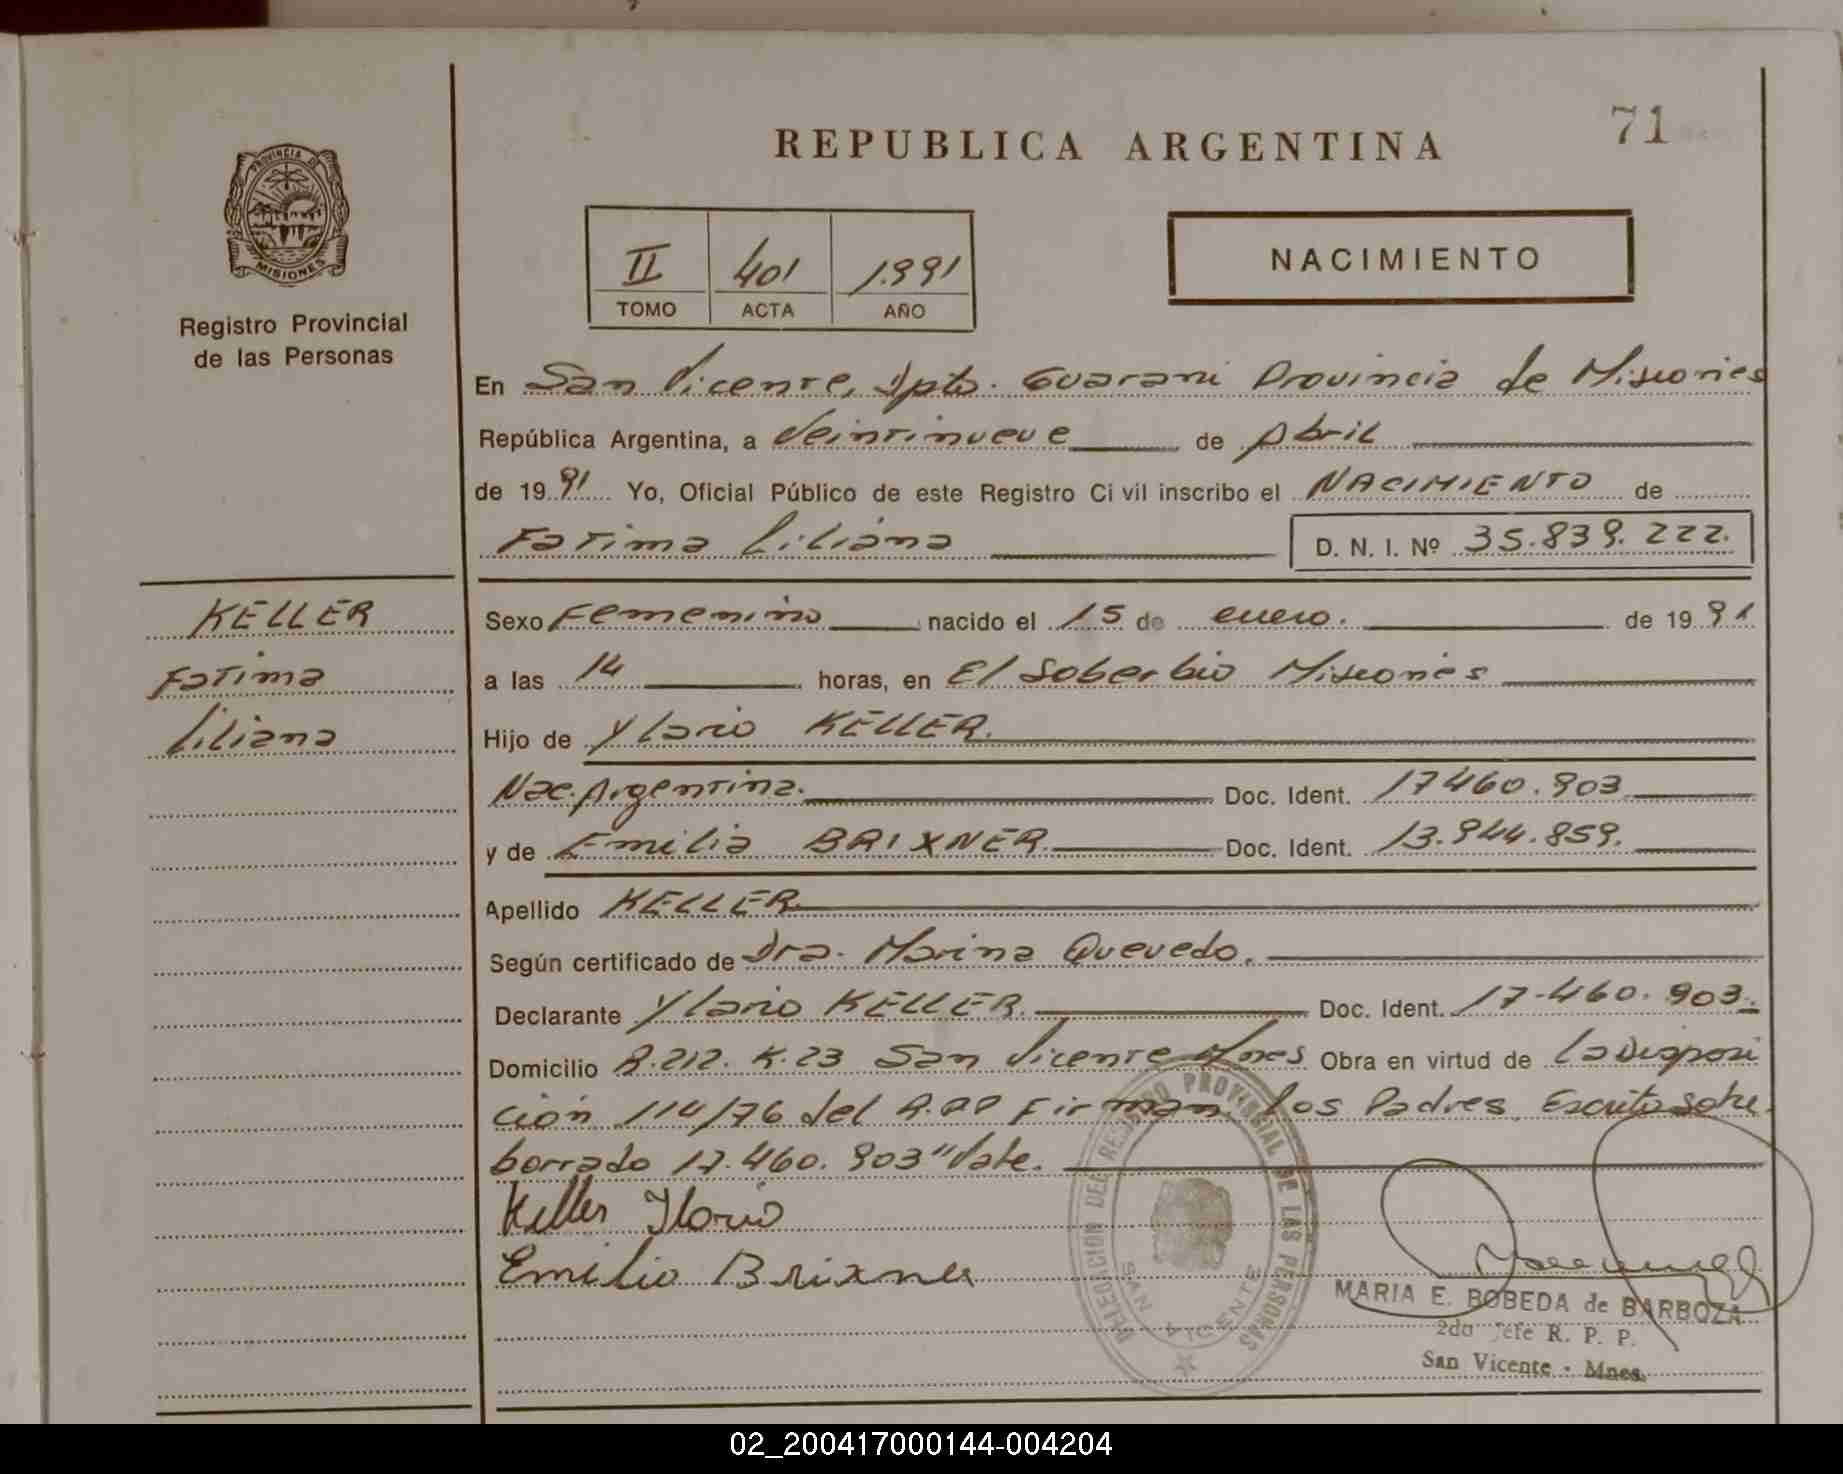 71
REPUBLICA ARGENTINA
PROVINCIA DE
MISIONES
Registro Provincial
de las Personas
II 401 1.991
TOMO ACTA AÑO
NACIMIENTO
En San Vicente, Dpto. Guarani Provincia de Misiones
República Argentina, a Veintinueve de Abril
de 1991 Yo, Oficial Público de este Registro Civil inscribo el NACIMIENTO de
Fatima Liliana D. N. I. Nº 35.839.222.
KELLER
Fatima
Liliana
Sexo Femenino nacido el 15 de enero. de 1991
a las 14 horas, en El Soberbio Misiones
Hijo de Ylario KELLER.
Nac. Argentina. Doc. Ident. 17460.903
y de Emilia BRIXNER Doc. Ident. 13.944.859.
Apellido KELLER
Según certificado de Dra. Marina Quevedo.
Declarante Ylario KELLER. Doc. Ident. 17.460.903.
Domicilio R.212. K.23 San Vicente Mnes Obra en virtud de la Disposi
ción 114/76 del R.PP Firman los Padres. Escrito sobre
borrado 17.460.903" Vale.
Keller Ilario
Emilia Brixner
DELEGACION DEL REGISTRO PROVINCIAL DE LAS PERSONAS
SAN VICENTE
MARIA E. BOBEDA de BARBOZA
2do Jefe R. P. P.
San Vicente - Mnes.
02_200417000144-004204